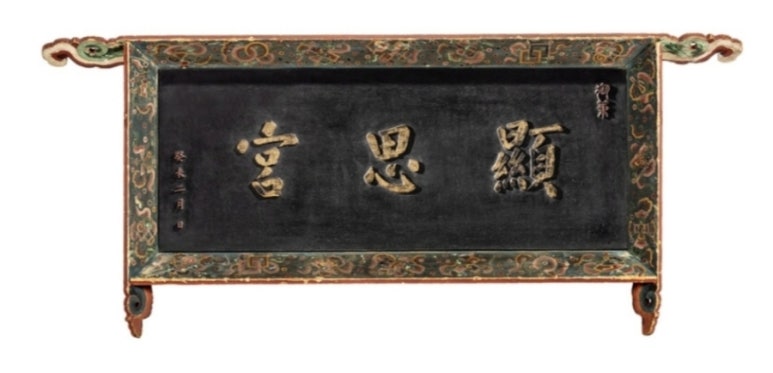 御筆
顯思宮
癸未二月 日